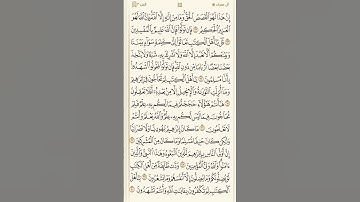 آل عمران
إِنَّ هَٰذَا لَهُوَ ٱلْقَصَصُ ٱلْحَقُّ وَمَا مِنْ إِلَٰهٍ إِلَّا ٱللَّهُ وَإِنَّ ٱللَّهَ لَهُوَ
ٱلْعَزِيزُ ٱلْحَكِيمُ ٦٢ فَإِن تَوَلَّوْا۟ فَإِنَّ ٱللَّهَ عَلِيمٌۢ بِٱلْمُفْسِدِينَ
٦٣ قُلْ يَٰٓأَهْلَ ٱلْكِتَٰبِ تَعَالَوْا۟ إِلَىٰ كَلِمَةٍ سَوَآءٍۭ بَيْنَنَا
وَبَيْنَكُمْ أَلَّا نَعْبُدَ إِلَّا ٱللَّهَ وَلَا نُشْرِكَ بِهِۦ شَيْـًٔا وَلَا يَتَّخِذَ
بَعْضُنَا بَعْضًا أَرْبَابًا مِّن دُونِ ٱللَّهِ فَإِن تَوَلَّوْا۟ فَقُولُوا۟ ٱشْهَدُوا۟
بِأَنَّا مُسْلِمُونَ ٦٤ يَٰٓأَهْلَ ٱلْكِتَٰبِ لِمَ تُحَآجُّونَ فِىٓ إِبْرَٰهِيمَ
وَمَآ أُنزِلَتِ ٱلتَّوْرَىٰةُ وَٱلْإِنجِيلُ إِلَّا مِنۢ بَعْدِهِۦٓ أَفَلَا تَعْقِلُونَ
٦٥ هَٰٓأَنتُمْ هَٰٓؤُلَآءِ حَٰجَجْتُمْ فِيمَا لَكُم بِهِۦ عِلْمٌ فَلِمَ
تُحَآجُّونَ فِيمَا لَيْسَ لَكُم بِهِۦ عِلْمٌ وَٱللَّهُ يَعْلَمُ وَأَنتُمْ
لَا تَعْلَمُونَ ٦٦ مَا كَانَ إِبْرَٰهِيمُ يَهُودِيًّا وَلَا نَصْرَانِيًّا
وَلَٰكِن كَانَ حَنِيفًا مُّسْلِمًا وَمَا كَانَ مِنَ ٱلْمُشْرِكِينَ
٦٧ إِنَّ أَوْلَى ٱلنَّاسِ بِإِبْرَٰهِيمَ لَلَّذِينَ ٱتَّبَعُوهُ وَهَٰذَا ٱلنَّبِىُّ وَٱلَّذِينَ
ءَامَنُوا۟ وَٱللَّهُ وَلِىُّ ٱلْمُؤْمِنِينَ ٦٨ وَدَّت طَّآئِفَةٌ مِّنْ أَهْلِ ٱلْكِتَٰبِ
لَوْ يُضِلُّونَكُمْ وَمَا يُضِلُّونَ إِلَّآ أَنفُسَهُمْ وَمَا يَشْعُرُونَ ٦٩ يَٰٓأَهْلَ
ٱلْكِتَٰبِ لِمَ تَكْفُرُونَ بِـَٔايَٰتِ ٱللَّهِ وَأَنتُمْ تَشْهَدُونَ ٧٠